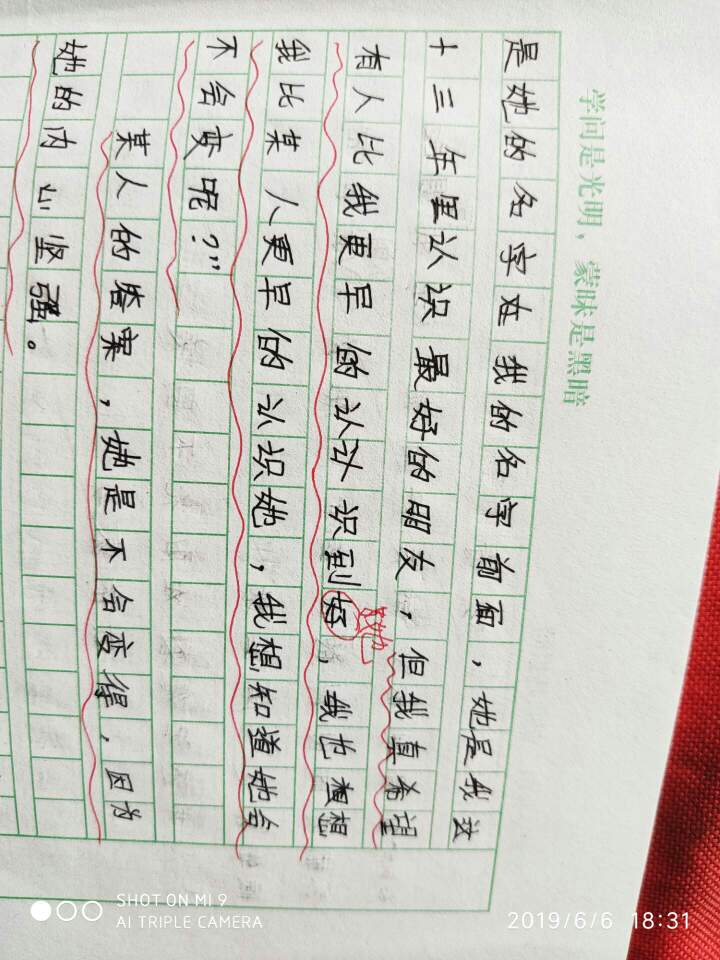 学问是光明，蒙昧是黑暗
是她的名字在我的名字前面，她是我这
十三年里认识最好的朋友，但我真希望
她
有人比我更早的认计识到好，我也想
我比某人更早的认识她，我想知道她会
不会变呢？”
某人的答案，她是不会变得，因为
她的内心坚强。
SHOT ON MI 9
AI TRIPLE CAMERA
2019/6/6 18:31